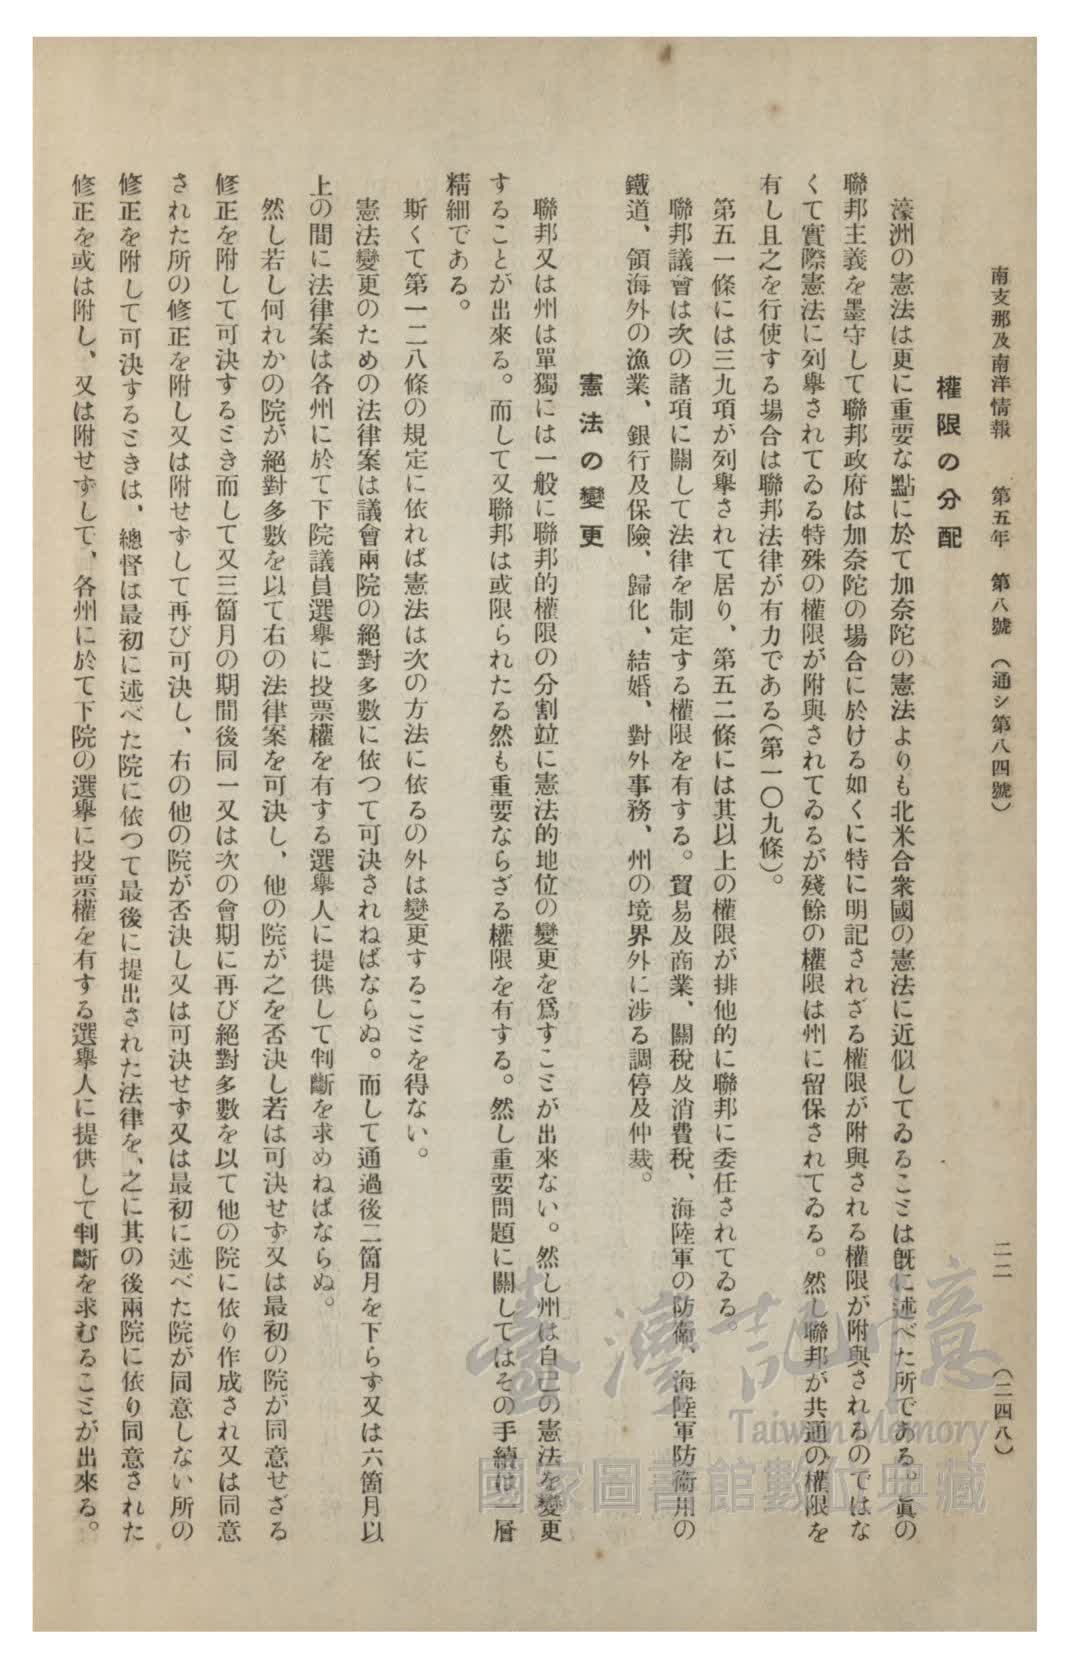 南支那及南洋情報　第五年　第八號（通シ第八四號）　二二　（二四八）
權限の分配
濠洲の憲法は更に重要な點に於て加奈陀の憲法よりも北米合衆國の憲法に近似してゐることは旣に述べた所である。眞の
聯邦主義を墨守して聯邦政府は加奈陀の場合に於ける如くに特に明記されざる權限が附與される權限が附與されるのではな
くて實際憲法に列擧されてゐる特殊の權限が附與されてゐるが殘餘の權限は州に留保されてゐる。然し聯邦が共通の權限を
有し且之を行使する場合は聯邦法律が有力である（第一〇九條）。
第五一條には三九項が列擧されて居り、第五二條には其以上の權限が排他的に聯邦に委任されてゐる。
聯邦議會は次の諸項に關して法律を制定する權限を有する。貿易及商業、關稅及消費稅、海陸軍の防衞、海陸軍防衞用の
鐵道、領海外の漁業、銀行及保險、歸化、結婚、對外事務、州の境界外に涉る調停及仲裁。
憲法の變更
聯邦又は州は單獨には一般に聯邦的權限の分割竝に憲法的地位の變更を爲すことが出來ない。然し州は自己の憲法を變更
することが出來る。而して又聯邦は或限られたる然も重要ならざる權限を有する。然し重要問題に關してはその手續は一層
精細である。
斯くて第一二八條の規定に依れば憲法は次の方法に依るの外は變更することを得ない。
憲法變更のための法律案は議會兩院の絕對多數に依つて可決されねばならぬ。而して通過後二箇月を下らず又は六箇月以
上の間に法律案は各州に於て下院議員選擧に投票權を有する選擧人に提供して判斷を求めねばならぬ。
然し若し何れかの院が絕對多數を以て右の法律案を可決し、他の院が之を否決し若は可決せず又は最初の院が同意せざる
修正を附して可決するとき而して又三箇月の期間後同一又は次の會期に再び絕對多數を以て他の院に依り作成され又は同意
された所の修正を附し又は附せずして再び可決し、右の他の院が否決し又は可決せず又は最初に述べた院が同意しない所の
修正を附して可決するときは、總督は最初に述べた院に依つて最後に提出された法律を、之に其の後兩院に依り同意された
修正を或は附し、又は附せずして、各州に於て下院の選擧に投票權を有する選擧人に提供して判斷を求むることが出來る。
臺灣記憶
Taiwan Memory
國家圖書館數位典藏